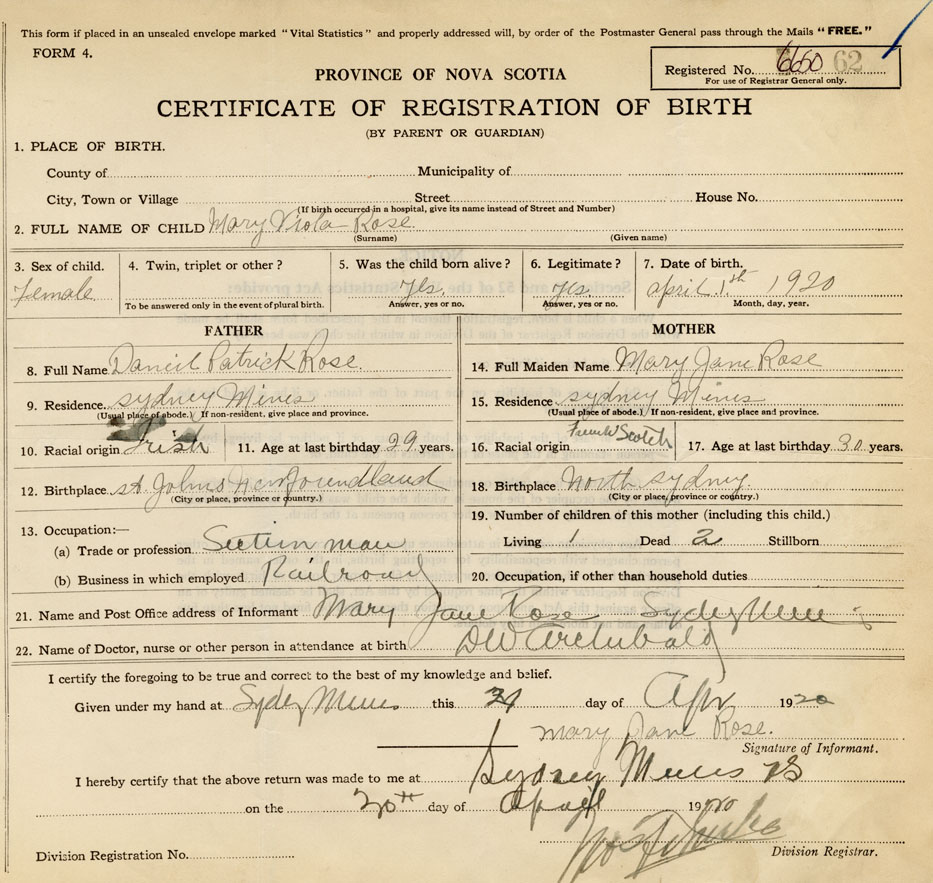 This form if placed in an unsealed envelope marked "Vital Statistics" and properly addressed will, by order of the Postmaster General pass through the Mails "FREE."
FORM 4.
Registered No. 6650 62
For use of Registrar General only.
PROVINCE OF NOVA SCOTIA
CERTIFICATE OF REGISTRATION OF BIRTH
(BY PARENT OR GUARDIAN)
1. PLACE OF BIRTH.
County of Municipality of
City, Town or Village Street House No.
(If birth occurred in a hospital, give its name instead of Street and Number)
2. FULL NAME OF CHILD Mary Viola Rose
(Surname) (Given name)
3. Sex of child. 4. Twin, triplet or other? 5. Was the child born alive? 6. Legitimate? 7. Date of birth.
Female yes. yes. april 1st 1920
To be answered only in the event of plural birth. Answer, yes or no. Answer, yes or no. Month, day, year.
FATHER
8. Full Name Daneil Patrick Rose.
9. Residence. sydney Mines
(Usual place of abode.) If non-resident, give place and province.
10. Racial origin Irish 11. Age at last birthday 29 years.
12. Birthplace st Johns Newfoundland
(City or place, province or country.)
13. Occupation:—
(a) Trade or profession Section man
(b) Business in which employed Railroad
MOTHER
14. Full Maiden Name Mary Jane Rose
15. Residence sydney Mines
(Usual place of abode.) If non-resident, give place and province.
16. Racial origin French Scotch 17. Age at last birthday 30 years.
18. Birthplace North sydney.
(City or place, province or country.)
19. Number of children of this mother (including this child.)
Living 1 Dead 2 Stillborn
20. Occupation, if other than household duties
21. Name and Post Office address of Informant Mary Jane Rose Sydney Mines
22. Name of Doctor, nurse or other person in attendance at birth DW Archibald
I certify the foregoing to be true and correct to the best of my knowledge and belief.
Given under my hand at Sydney Mines this day of Apr 1920
mary Jane Rose.
Signature of Informant.
I hereby certify that the above return was made to me at Sydney Mines NS
on the 20th day of April 1920
Division Registration No. Division Registrar.